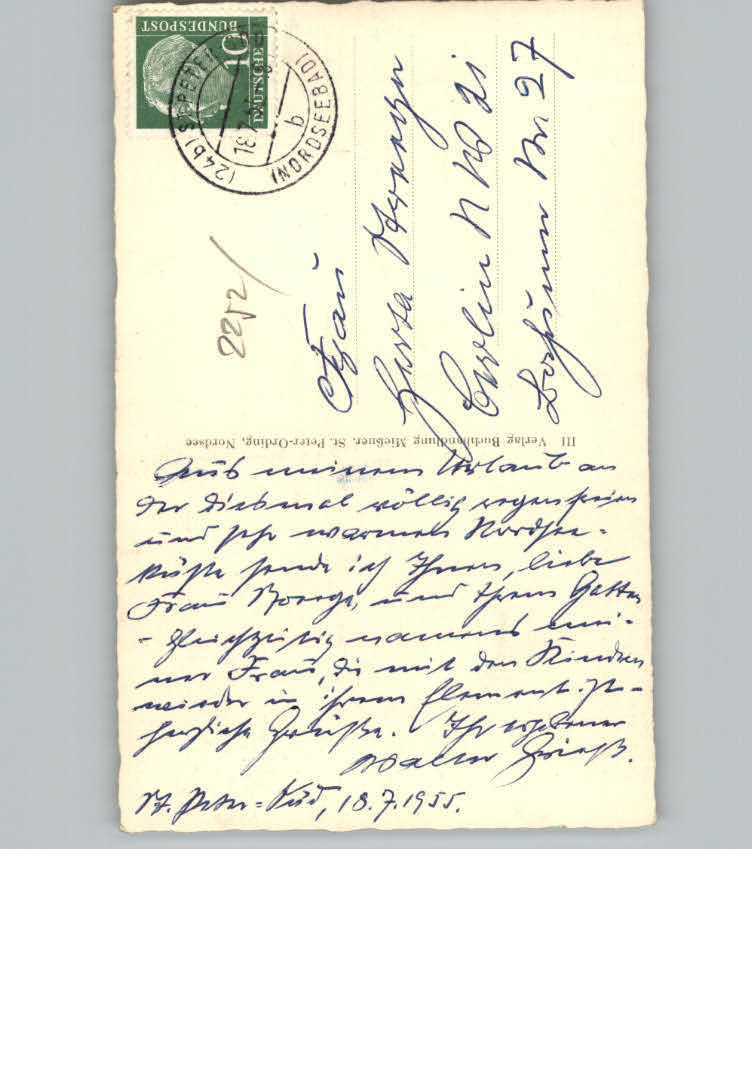 DEUTSCHE
BUNDESPOST
10
(24b) ST. PETER
(NORDSEEBAD)
b
18.7.
2252/
Frau
Herta
Berlin NW 21
Bochumer Str. 27
III Verlag Buchhandlung Mießner, St. Peter-Ording, Nordsee
Aus meinem Urlaub an
der diesmal völlig regenfreien
und sehr warmen Nordsee-
küste sende ich Ihnen, liebe
Frau und Ihrem Gatten
- gleichzeitig namens mei-
ner Frau, die mit den Kindern
wieder in ihrem Element ist -
herzliche Grüße. Ihr ergebener
Walter
St. Peter-Süd, 18.7.1955.